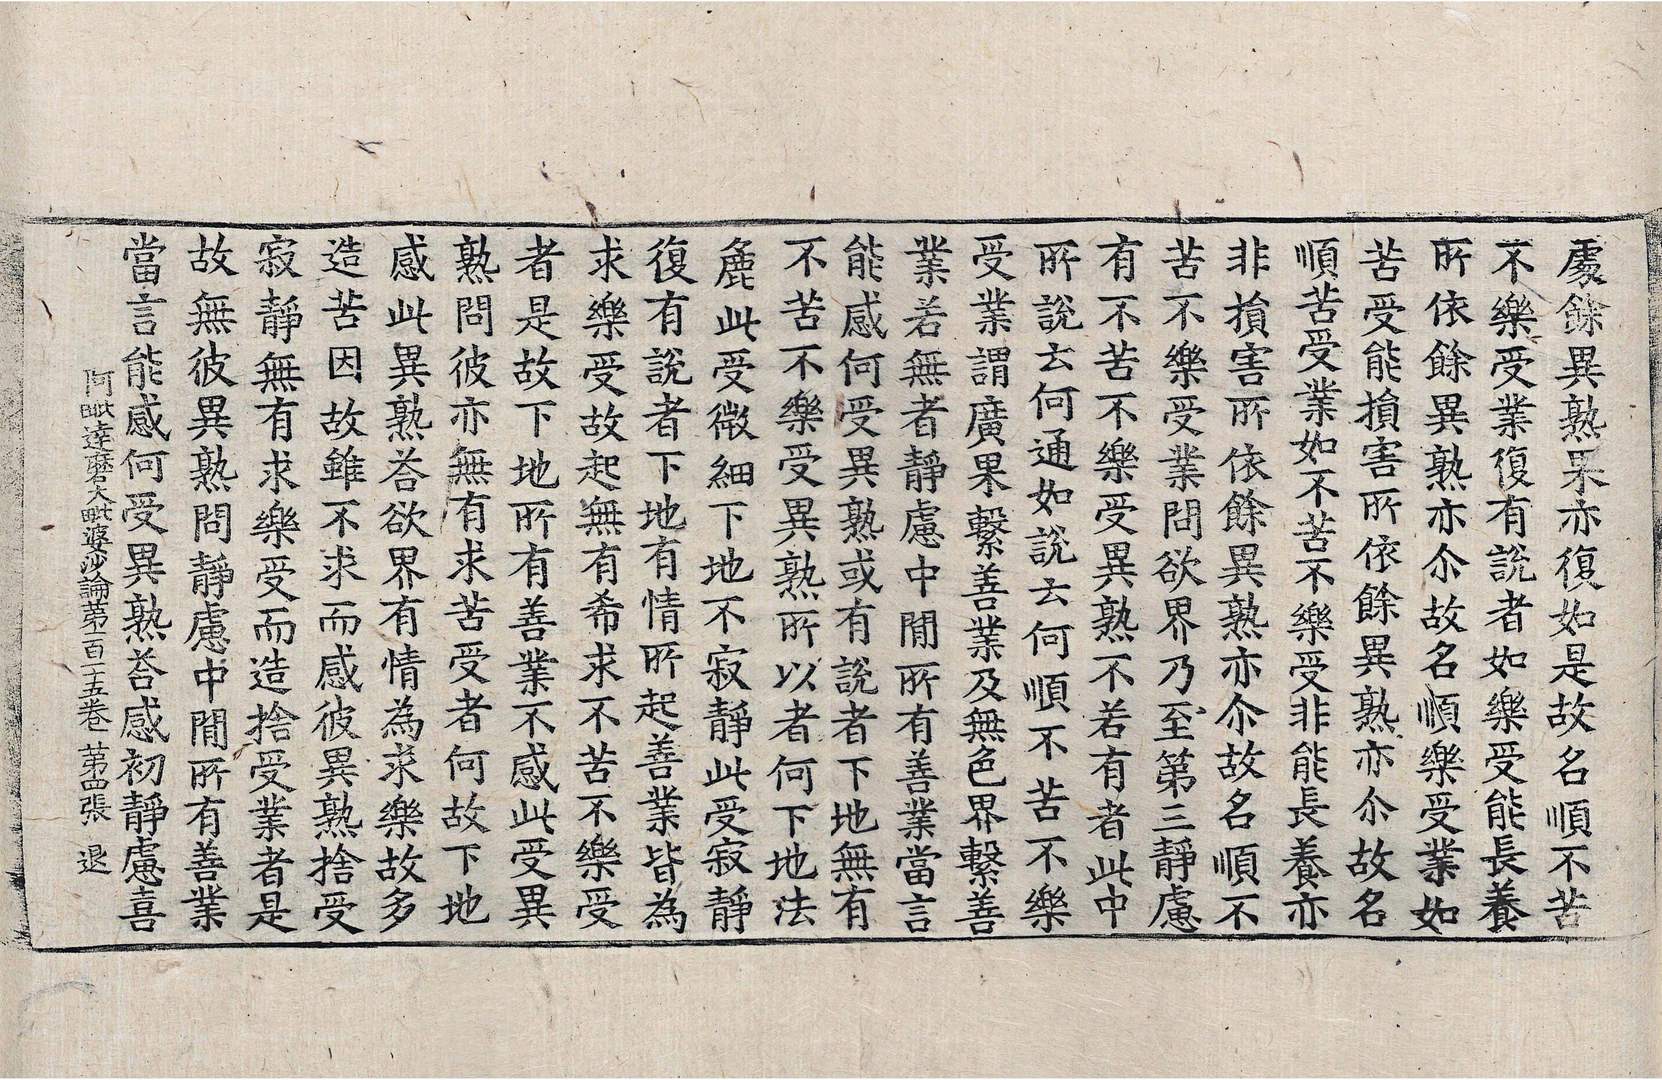 處餘異熟果亦復如是故名順不苦
不樂受業復有說者如樂受能長養
所依餘異熟亦尒故名順樂受業如
苦受能損害所依餘異熟亦尒故名
順苦受業如不苦不樂受非能長養亦
非損害所依餘異熟亦尒故名順不
苦不樂受業問欲界乃至第三靜慮
有不苦不樂受異熟不若有者此中
所說云何通如說云何順不苦不樂
受業謂廣果繫善業及無色界繫善
業若無者靜慮中閒所有善業當言
能感何受異熟或有說者下地無有
不苦不樂受異熟所以者何下地法
麁此受微細下地不寂靜此受寂靜
復有說者下地有情所起善業皆為
求樂受故起無有希求不苦不樂受
者是故下地所有善業不感此受異
熟問彼亦無有求苦受者何故下地
感此異熟荅欲界有情為求樂故多
造苦因故雖不求而感彼異熟捨受
寂靜無有求樂受而造捨受業者是
故無彼異熟問靜慮中閒所有善業
當言能感何受異熟荅感初靜慮喜
阿毗達磨大毗婆沙論第一百一十五卷 第四張 退